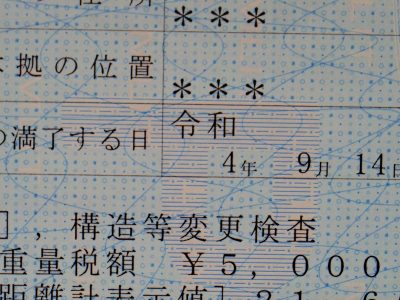 の住所
***
本拠の位置
***
の満了する日
令和
4年 9月 14日
],構造等変更検査
重量税額 ¥5,000
距離計表示値]